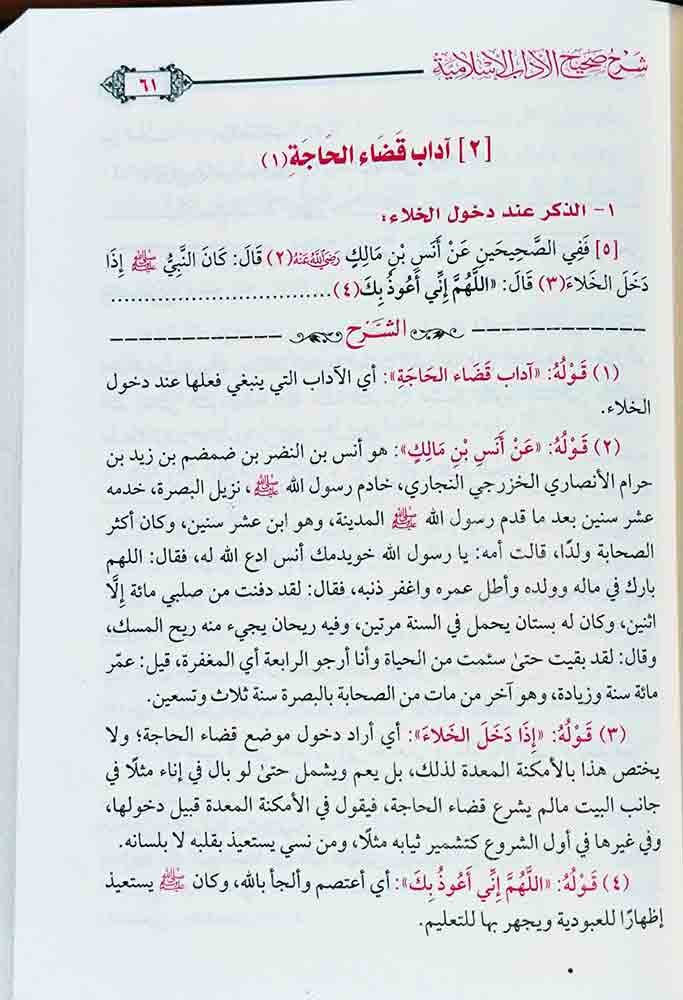 شرح صحيح الآداب الإسلامية
٦١
[٢] آداب قَضَاء الحَاجَةِ (١)
١- الذكر عند دخول الخلاء:
[٥] فَفِي الصَّحِيحَينِ عَنْ أَنَسِ بْنِ مَالِكٍ رَضِيَ اللَّهُ عَنْهُ (٢) قَالَ: كَانَ النَّبِيُّ ﷺ إِذَا
دَخَلَ الخَلاءَ (٣) قَالَ: «اللَّهُمَّ إِنِّي أَعُوذُ بِكَ (٤) ................................
الشَّرح
(١) قَوْلُهُ: «آداب قَضَاء الحَاجَةِ»: أي الآداب التي ينبغي فعلها عند دخول
الخلاء.
(٢) قَوْلُهُ: «عَنْ أَنَسِ بْنِ مَالِكٍ»: هو أنس بن النضر بن ضمضم بن زيد بن
حرام الأنصاري الخزرجي النجاري، خادم رسول الله ﷺ، نزيل البصرة، خدمه
عشر سنين بعد ما قدم رسول الله ﷺ المدينة، وهو ابن عشر سنين، وكان أكثر
الصحابة ولدًا، قالت أمه: يا رسول الله خويدمك أنس ادع الله له، فقال: اللهم
بارك في ماله وولده وأطل عمره واغفر ذنبه، فقال: لقد دفنت من صلبي مائة إِلَّا
اثنين، وكان له بستان يحمل في السنة مرتين، وفيه ريحان يجيء منه ريح المسك،
وقال: لقد بقيت حتىٰ سئمت من الحياة وأنا أرجو الرابعة أي المغفرة، قيل: عمّر
مائة سنة وزيادة، وهو آخر من مات من الصحابة بالبصرة سنة ثلاث وتسعين.
(٣) قَوْلُهُ: «إِذَا دَخَلَ الخَلاءَ»: أي أراد دخول موضع قضاء الحاجة؛ ولا
يختص هذا بالأمكنة المعدة لذلك، بل يعم ويشمل حتىٰ لو بال في إناء مثلًا في
جانب البيت مالم يشرع قضاء الحاجة، فيقول في الأمكنة المعدة قبيل دخولها،
وفي غيرها في أول الشروع كتشمير ثيابه مثلًا، ومن نسي يستعيذ بقلبه لا بلسانه.
(٤) قَوْلُهُ: «اللَّهُمَّ إِنِّي أَعُوذُ بِكَ»: أي أعتصم وألجأ بالله، وكان ﷺ يستعيذ
إظهارًا للعبودية ويجهر بها للتعليم.